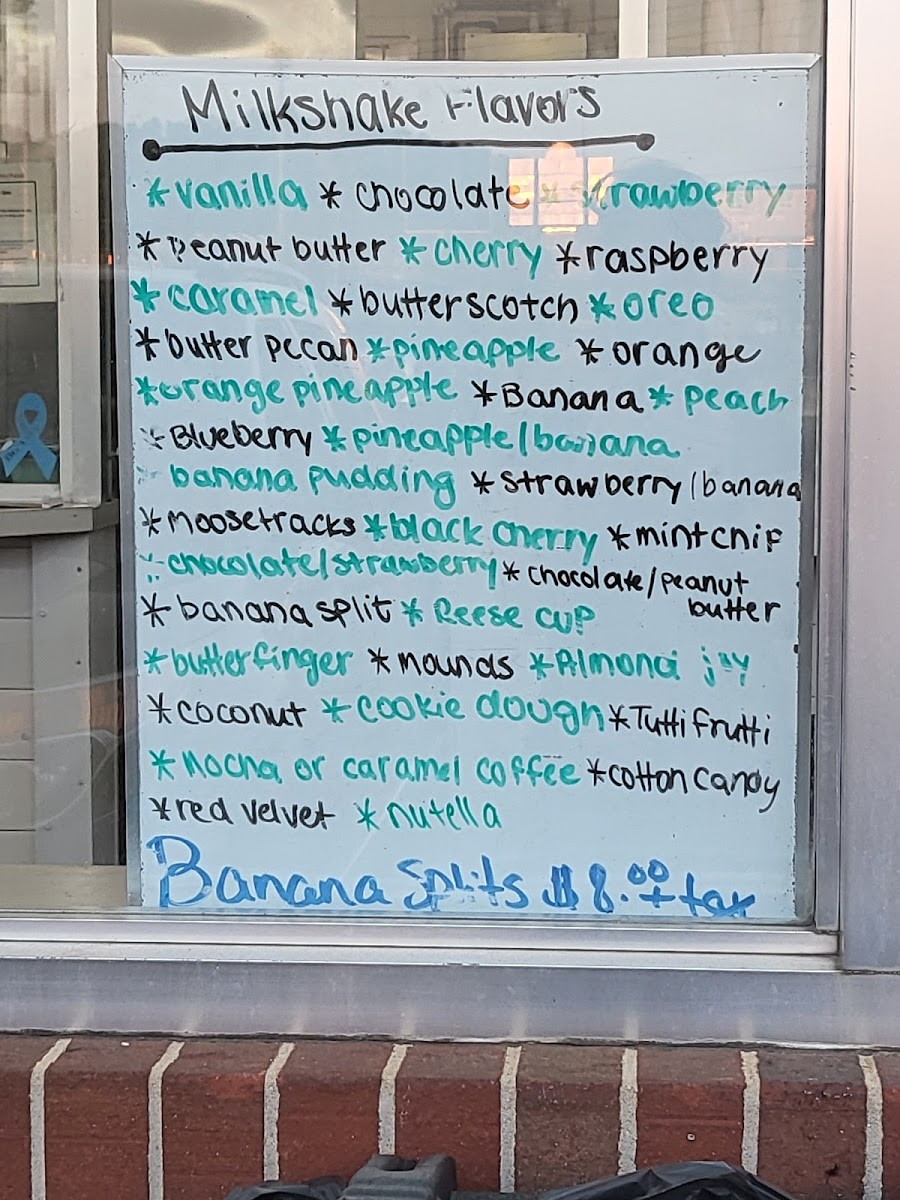 Milkshake Flavors
*vanilla *chocolate *strawberry
*Peanut butter *cherry *raspberry
*caramel *butterscotch *oreo
*butter pecan *pineapple *orange
*orange pineapple *Banana *Peach
*Blueberry *pineapple/banana
*banana pudding *strawberry/banana
*moosetracks *black cherry *mint chip
*chocolate/strawberry *chocolate/peanut
butter
*banana split *Reese cup
*butterfinger *mounds *Almond joy
*coconut *cookie dough *Tutti frutti
*Mocha or caramel coffee *cotton candy
*red velvet *nutella
Banana Splits $8.00 + tax